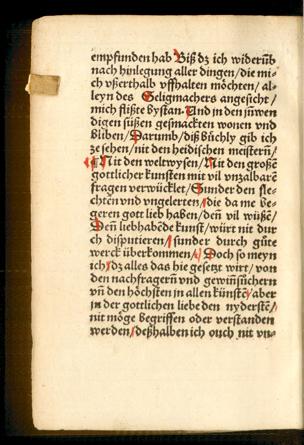 empfunden hab Biß dz ich widerũb
nach hinlegung aller dingen/ die mi-
ch vßerthalb vffhalten möchten/ al-
leyn des Seligmachers angesicht/
mich flißte bystan. Und in den süwen
digen süßen gesmackten wonen vnd
bliben/ Darumb/ diß büchly gib ich
ze sehen/ nit den heidischen meistern/
Nit den weltwysen/ Nit den großẽ
gottlicher kunsten mit vil vnzalbarẽ
fragen verwücklet/ Sunder den sle-
chten vnd vngelerten/ die da me be-
geren gott lieb haben/ deñ vil wüßẽ/
Deñ liebhabẽde kunst/ würt nit dur
ch disputieren/ sunder durch güte
werck überkommen/ Doch so meyn
ich/ dz alles das hie gesetzt wirt/ von
den nachfragern vnd gewiñsüchern
vñ den höchsten in allen künstẽ/ aber
in der gottlichen liebe den nydersten/
nit möge begriffen oder verstanden
werden/ deßhalben ich ouch nit vn-